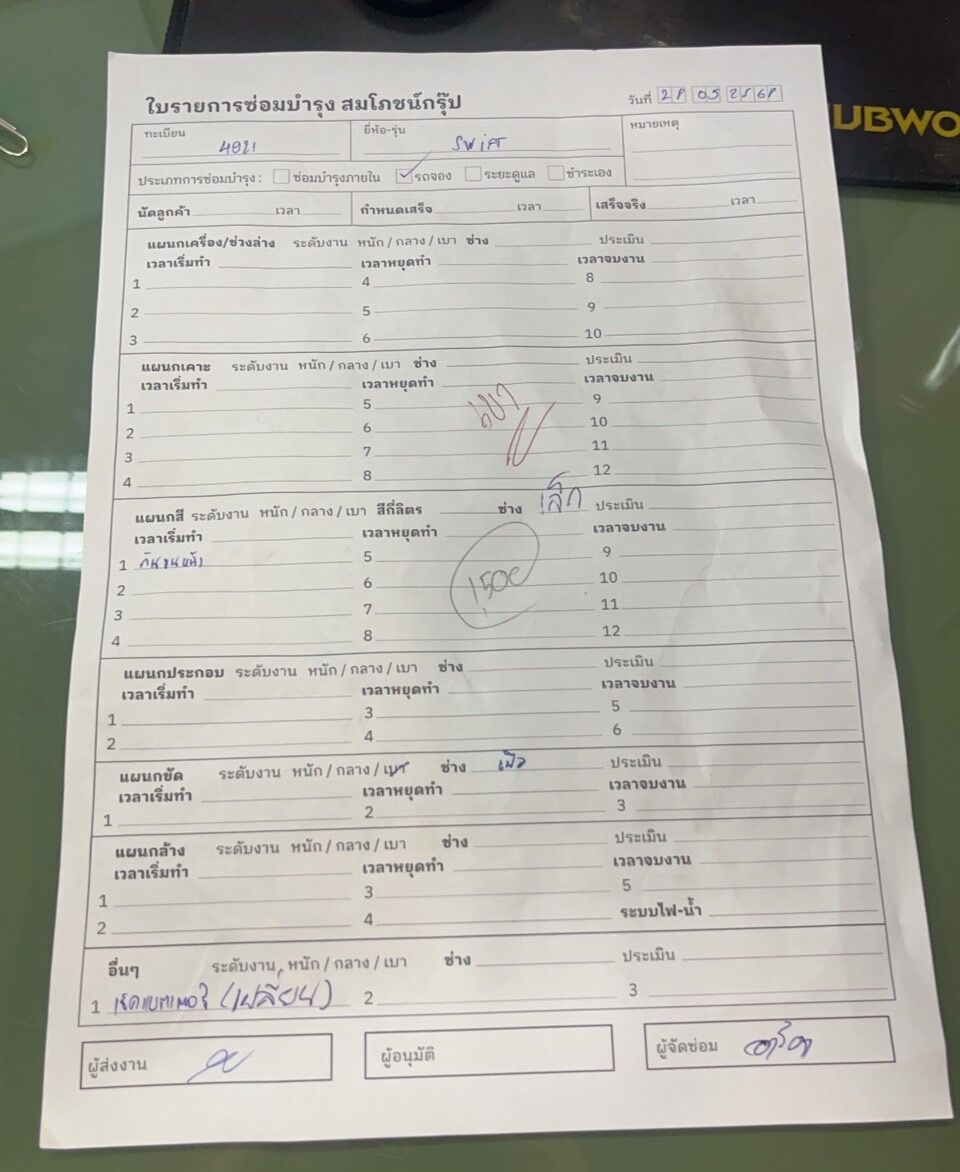 ใบรายการซ่อมบำรุง สมโภชน์กรุ๊ป
วันที่ 28 05 2568
UBWO
ทะเบียน 4021 ยี่ห้อ-รุ่น SWIFT หมายเหตุ
ประเภทการซ่อมบำรุง : ซ่อมบำรุงภายใน รถจอง ระยะดูแล ชำระเอง
นัดลูกค้า เวลา กำหนดเสร็จ เวลา เสร็จจริง เวลา
แผนกเครื่อง/ช่วงล่าง ระดับงาน หนัก / กลาง / เบา ช่าง ประเมิน
เวลาเริ่มทำ เวลาหยุดทำ เวลาจบงาน
1 4 8
2 5 9
3 6 10
แผนกเคาะ ระดับงาน หนัก / กลาง / เบา ช่าง ประเมิน
เวลาเริ่มทำ เวลาหยุดทำ เวลาจบงาน
1 5 9
2 6 10
3 7 11
4 8 12
แผนกสี ระดับงาน หนัก / กลาง / เบา สีกี่ลิตร ช่าง เล็ก ประเมิน
เวลาเริ่มทำ เวลาหยุดทำ เวลาจบงาน
1 กันชนหลัง 5 9
2 6 1,500 10
3 7 11
4 8 12
แผนกประกอบ ระดับงาน หนัก / กลาง / เบา ช่าง ประเมิน
เวลาเริ่มทำ เวลาหยุดทำ เวลาจบงาน
1 3 5
2 4 6
แผนกขัด ระดับงาน หนัก / กลาง / เบา ช่าง ประเมิน
เวลาเริ่มทำ เวลาหยุดทำ เวลาจบงาน
1 2 3
แผนกล้าง ระดับงาน หนัก / กลาง / เบา ช่าง ประเมิน
เวลาเริ่มทำ เวลาหยุดทำ เวลาจบงาน
1 3 5
2 4 ระบบไฟ-น้ำ
อื่นๆ ระดับงาน หนัก / กลาง / เบา ช่าง ประเมิน
1 เช็คแบตเตอรี่ (เปลี่ยน) 2 3
ผู้ส่งงาน ผู้อนุมัติ ผู้จัดซ่อม